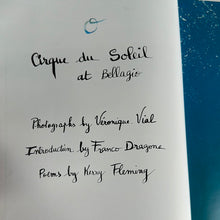 Cirque du Soleil
at Bellagio
Photographs by Véronique Vial
Introduction by Franco Dragone
Poems by Kerry Fleming